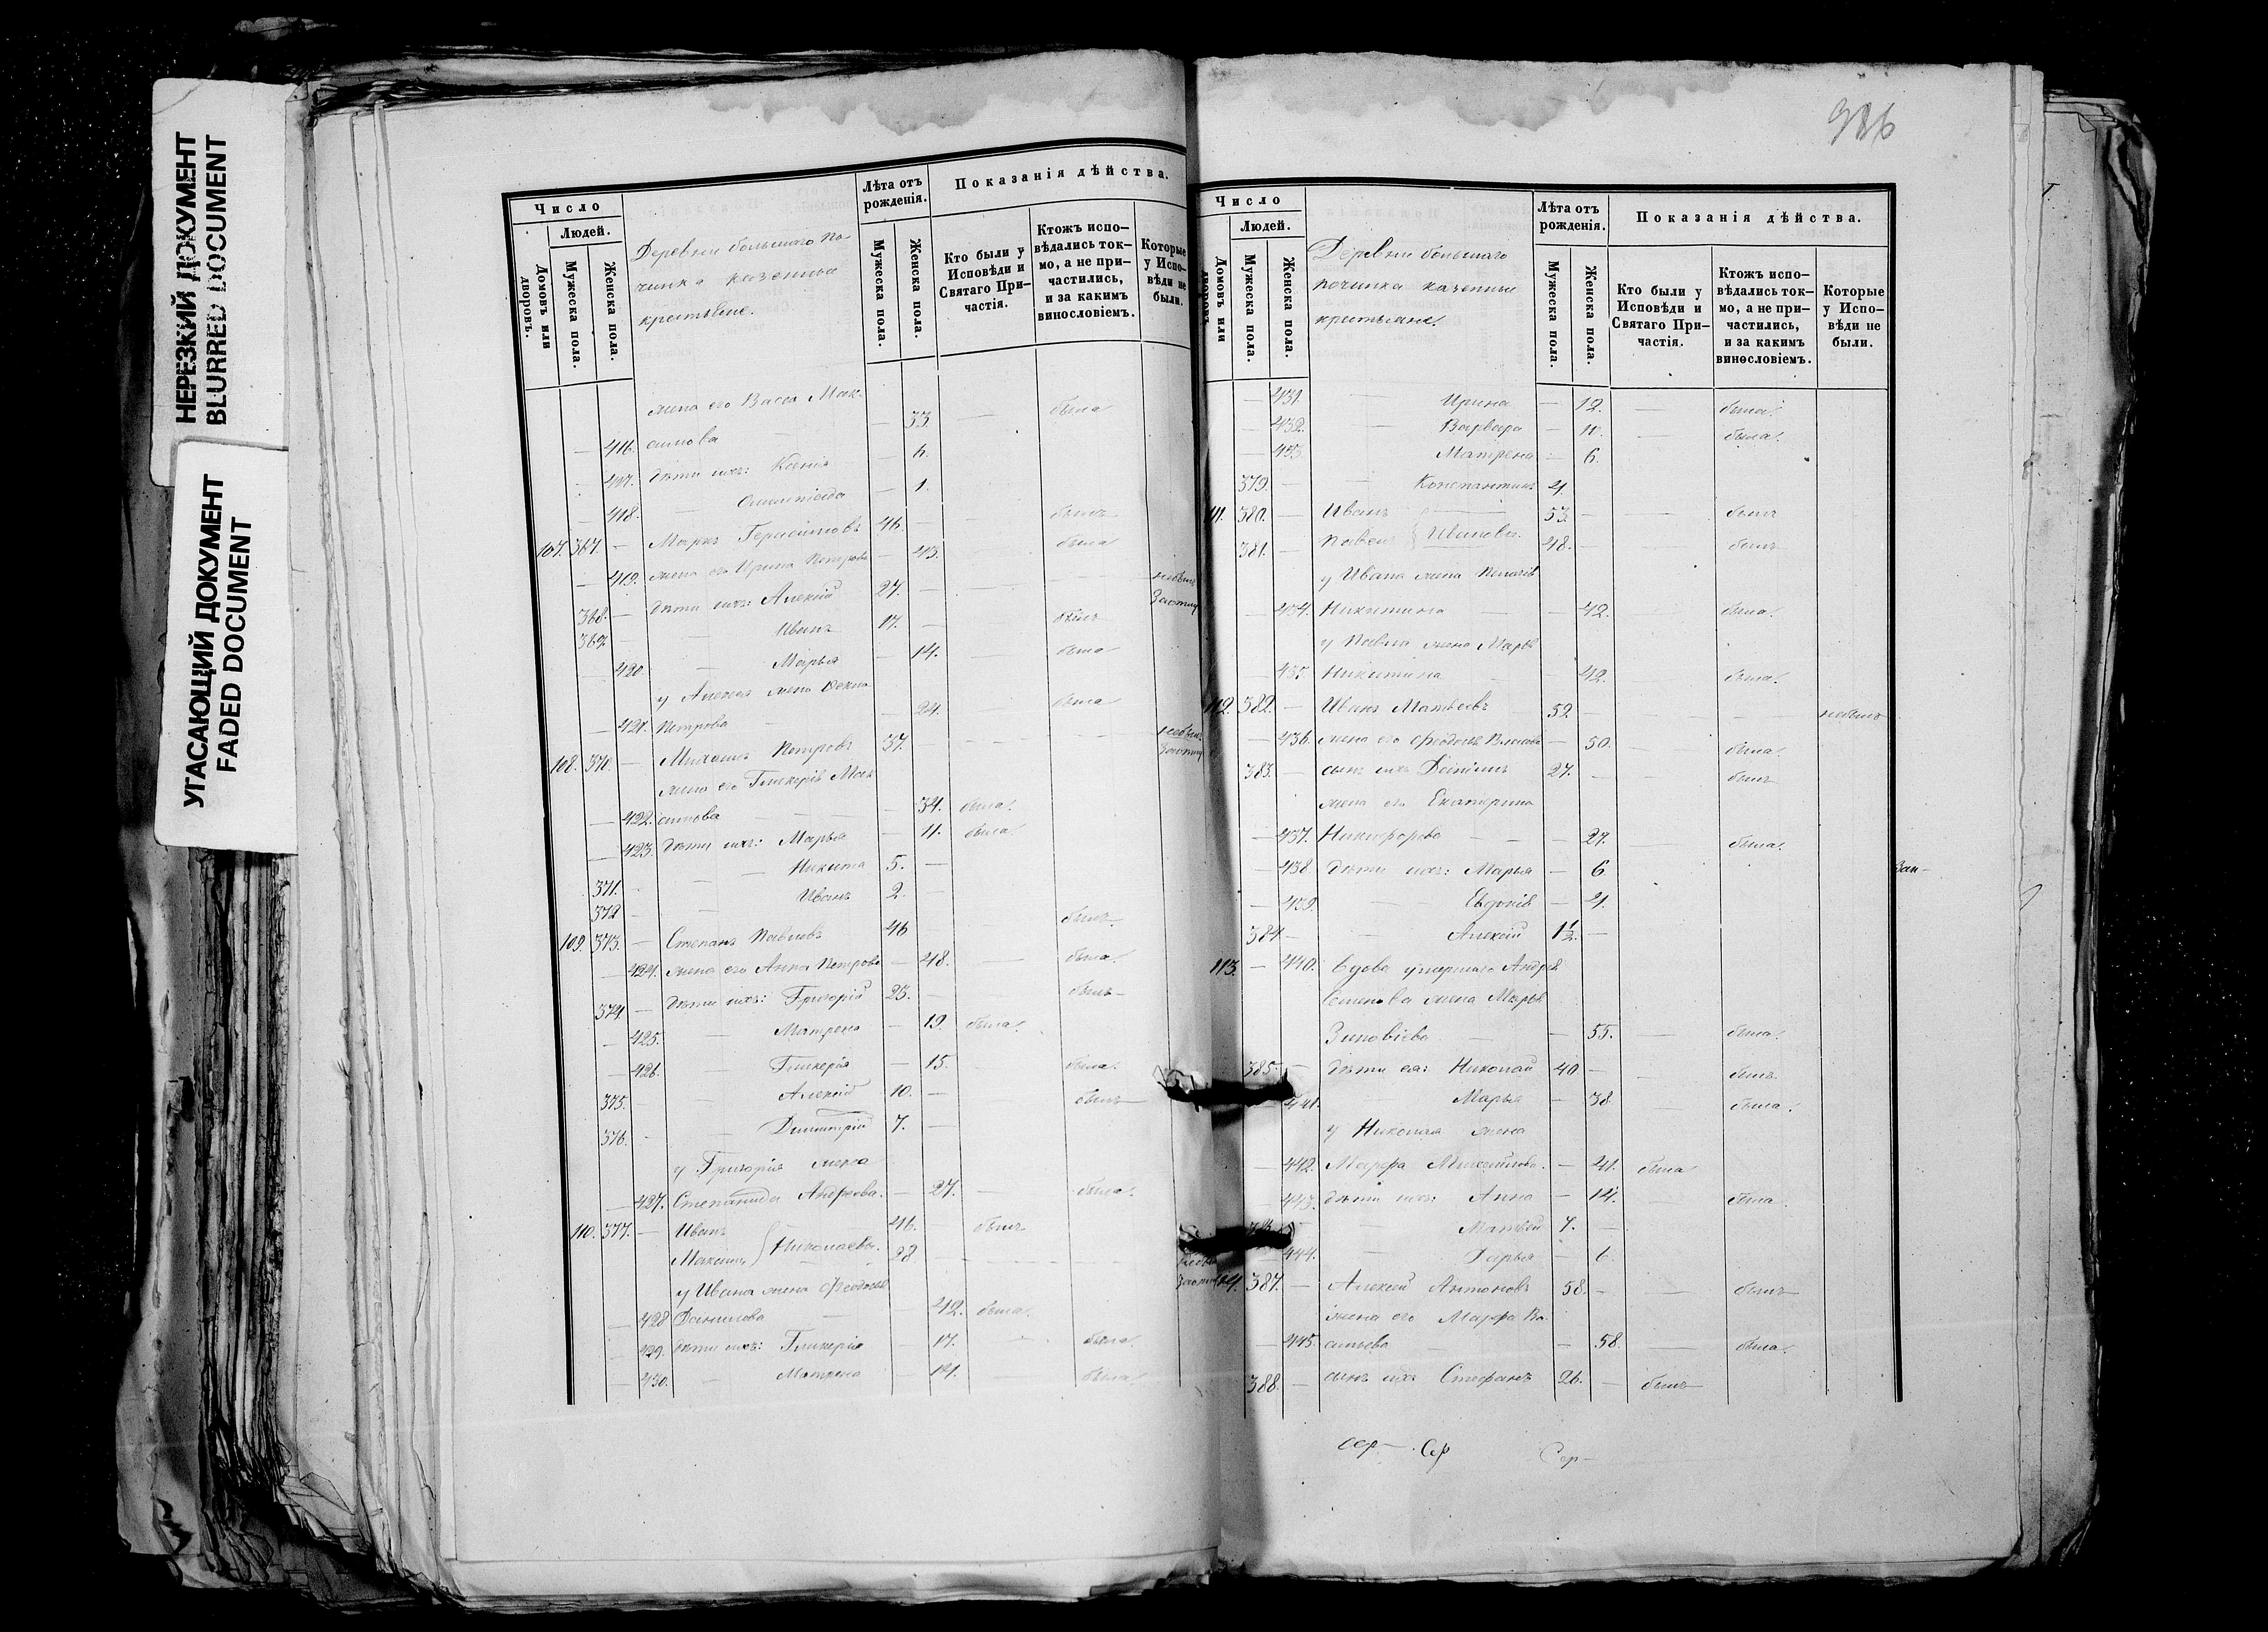 НЕРЕЗКИЙ ДОКУМЕНТ
BLURRED DOCUMENT
УГАСАЮЩИЙ ДОКУМЕНТ
FADED DOCUMENT
Число
Людей.
Домовъ или дворовъ.
Мужеска пола.
Женска пола.
Деревни большаго по-
чинка казенные
крестьяне.
Лѣта отъ рожденія.
Мужеска пола.
Женска пола.
Показанія дѣйства.
Кто были у Исповѣди и Святаго При-частія.
Ктожъ испо-вѣдались ток-мо, а не при-частились, и за какимъ винословіемъ.
Которые у Испо-вѣди не были.
жена его Васса Мак-
416. симова — 33. — была
417. дѣти ихъ: Ксенія — 6.
418. — Олимпіада — 1.
107. 367. — Маркъ Герасимовъ 46. — былъ
419. жена его Ирина Петрова — 43. была
368. — дѣти ихъ: Алексѣй 27. — небылъ
369. — Иванъ 17. — былъ
420. — Марья — 14. — была
у Алексея жена
421. Петрова — 24. была
108. 370. — Михаилъ Петровъ 37. — небылъ
жена его Гликерія Мак
422. симова — 34. была.
423. дѣти ихъ: Марья — 11. была.
371. — Никита 5. —
372 — Иванъ 2. —
109. 373. — Степанъ Павловъ 46 былъ
424. жена его Анна Петрова — 48. — была
374 — дѣти ихъ: Григорій 23. — былъ
425. — Матрена — 19. была.
426. Гликерія — 15. была.
375. — Алексѣй 10. — былъ
376. — Димитрій 7. —
у Григорія жена
427. Степанида Андреева. — 27. — была.
110. 377. — Иванъ 46. — былъ
Максимъ } Николаевы. 28. —
у Ивана жена Феодосья
428 Данилова — 42. была.
429. дѣти ихъ: Гликерія — 17. — была.
430. — Матрена — 14. была.
386
Число
Людей.
Домовъ или дворовъ.
Мужеска пола.
Женска пола.
Деревни большаго
починка казенные
крестьяне.
Лѣта отъ рожденія.
Мужеска пола.
Женска пола.
Показанія дѣйства.
Кто были у Исповѣди и Святаго При-частія.
Ктожъ испо-вѣдались ток-мо, а не при-частились, и за какимъ винословіемъ.
Которые у Испо-вѣди не были.
— 431. — Ирина — 12. — была.
— 432. — Варвара — 10. — была.
— 433. Матрена — 6.
379. — Константинъ 4.
111. 380. — Иванъ 53. — былъ
381. — Павелъ } Ивановы. 48. — былъ
у Ивана жена Пелагія
— 434. Никитина — 42. была.
у Павла жена Марья
— 435. Никитина — 42. была.
112. 382. — Иванъ Матвеевъ 52. — небылъ
— 436. жена его Феодосья Власова — 50. — была.
383. — сынъ ихъ Даніилъ 27. — былъ
жена его Екатерина
— 437. Никифорова — 27. была.
— 438. дѣти ихъ: Марья — 6
— 439. — Евдокія — 4.
384. — Алексѣй 1½. —
113. — 440. вдова умершаго Андрея
Семенова жена Марья
Зиновіева — 55. — была.
385. — дѣти ея: Николай 40. — былъ
441. Марья — 38. была.
у Николая жена
— 442. Марфа Михайлова. — 41. была
443. дѣти ихъ: Анна — 14. — была.
Матвѣй 7. —
444. — Дарья — 6.
114. 387. — Алексѣй Антоновъ 58. — былъ
жена его Марфа Ва-
— 445. сильева — 58. — была.
388. — сынъ ихъ Стефанъ 26. — былъ